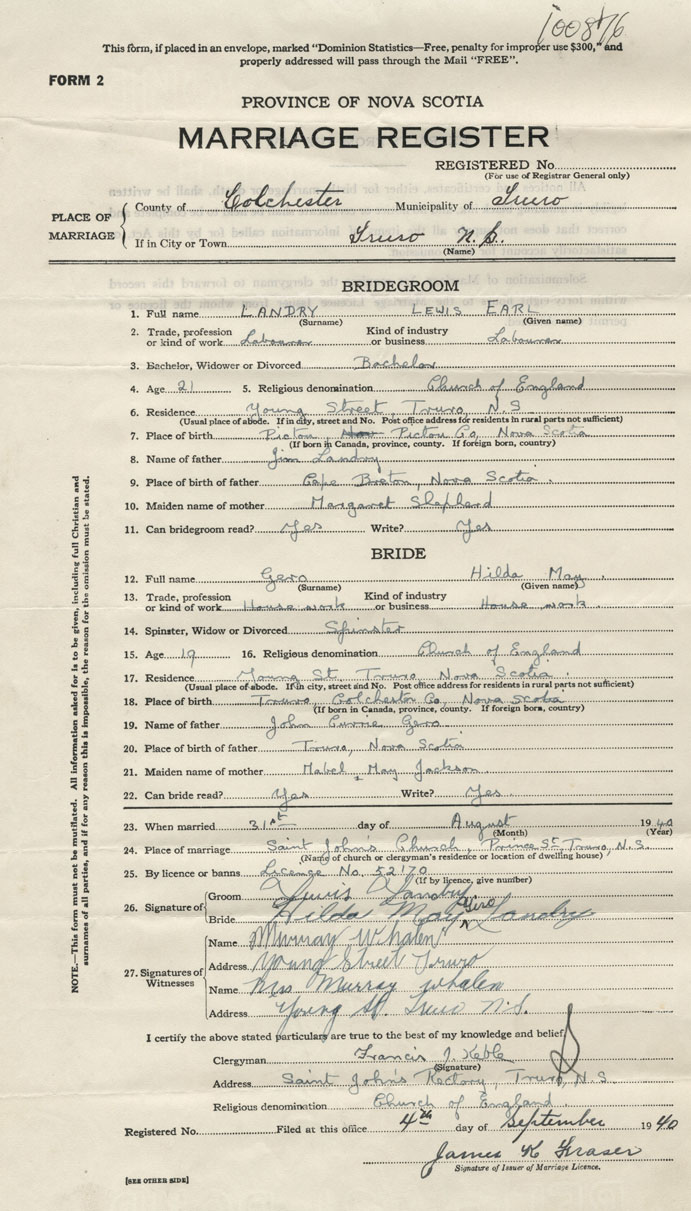 100876
This form, if placed in an envelope, marked "Dominion Statistics—Free, penalty for improper use $300," and
properly addressed will pass through the Mail "FREE".
FORM 2
PROVINCE OF NOVA SCOTIA
MARRIAGE REGISTER
REGISTERED No.
(For use of Registrar General only)
PLACE OF MARRIAGE
County of Colchester Municipality of Truro
If in City or Town Truro N.S.
(Name)
BRIDEGROOM
1. Full name LANDRY LEWIS EARL
(Surname) (Given name)
2. Trade, profession or kind of work Labourer Kind of industry or business Labourer
3. Bachelor, Widower or Divorced Bachelor
4. Age 21 5. Religious denomination Church of England
6. Residence Young Street, Truro, N.S.
(Usual place of abode. If in city, street and No. Post office address for residents in rural parts not sufficient)
7. Place of birth Pictou, Pictou Co, Nova Scotia
(If born in Canada, province, county. If foreign born, country)
8. Name of father Jim Landry
9. Place of birth of father Cape Breton, Nova Scotia.
10. Maiden name of mother Margaret Shepherd
11. Can bridegroom read? Yes Write? Yes
BRIDE
12. Full name Gero Hilda May.
(Surname) (Given name)
13. Trade, profession or kind of work House work Kind of industry or business House work.
14. Spinster, Widow or Divorced Spinster
15. Age 19 16. Religious denomination Church of England
17. Residence Young St. Truro, Nova Scotia.
(Usual place of abode. If in city, street and No. Post office address for residents in rural parts not sufficient)
18. Place of birth Truro, Colchester Co, Nova Scotia
(If born in Canada, province, county. If foreign born, country)
19. Name of father John Currie Gero
20. Place of birth of father Truro, Nova Scotia
21. Maiden name of mother Mabel May Jackson.
22. Can bride read? Yes Write? Yes.
23. When married 31st day of August 1940
(Month) (Year)
24. Place of marriage Saint John's Church, Prince St. Truro, N.S.
(Name of church or clergyman's residence or location of dwelling house)
25. By licence or banns Licence No. 52170
(If by licence, give number)
26. Signature of
Groom Lewis Landry
Bride Hilda May Gero Landry
27. Signatures of Witnesses
Name Murray Whalen
Address Young Street Truro
Name Mrs Murray Whalen
Address Young St. Truro N.S.
I certify the above stated particulars are true to the best of my knowledge and belief.
Clergyman Francis J. Keble
(Signature)
Address Saint John's Rectory, Truro, N.S.
Religious denomination Church of England
Registered No. Filed at this office 4th day of September 1940
James K Fraser
Signature of Issuer of Marriage Licence.
[SEE OTHER SIDE]
NOTE.—This form must not be mutilated. All information asked for is to be given, including full Christian and
surnames of all parties, and if for any reason this is impossible, the reason for the omission must be stated.